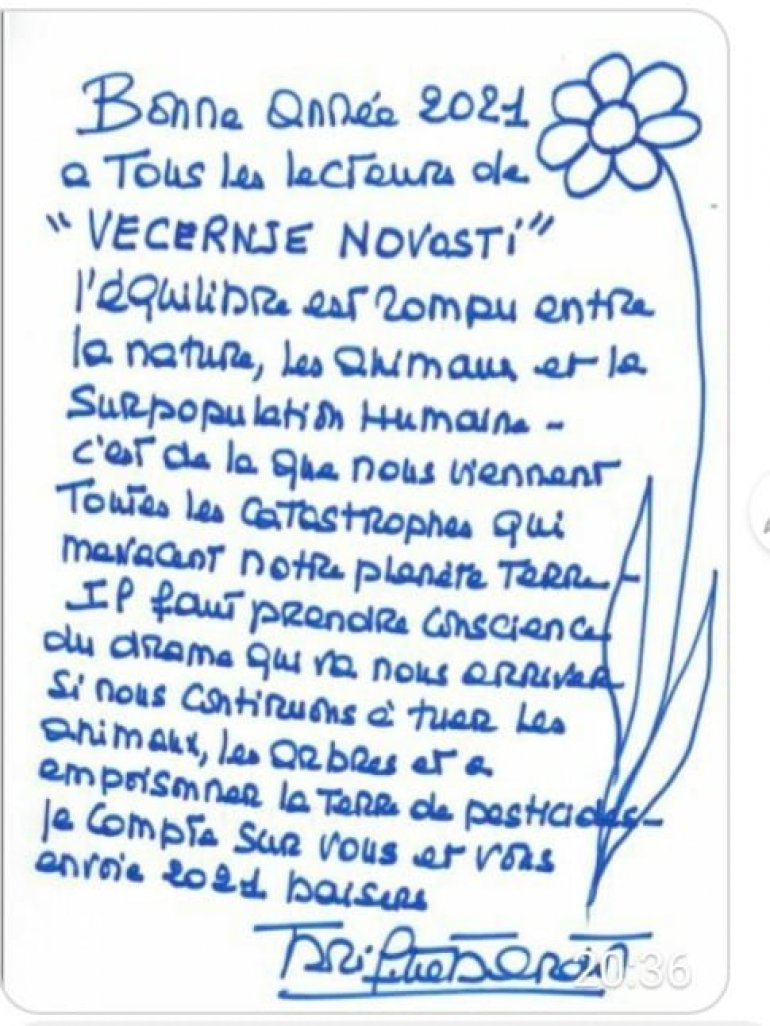 Bonne année 2021
a Tous les lecteurs de
"VECERNJE NOVOSTI"
l'équilibre est rompu entre
la nature, les animaux et la
Surpopulation Humaine -
c'est de la que nous viennent
Toutes les catastrophes qui
menacent notre planète Terre -
Il faut prendre conscience
du drame qui va nous arriver
Si nous continuons à tuer les
animaux, les arbres et a
empoisonner la Terre de pesticides -
je compte sur vous et vous
envoie 2021 baisers
Brigitte Bardot
20:36